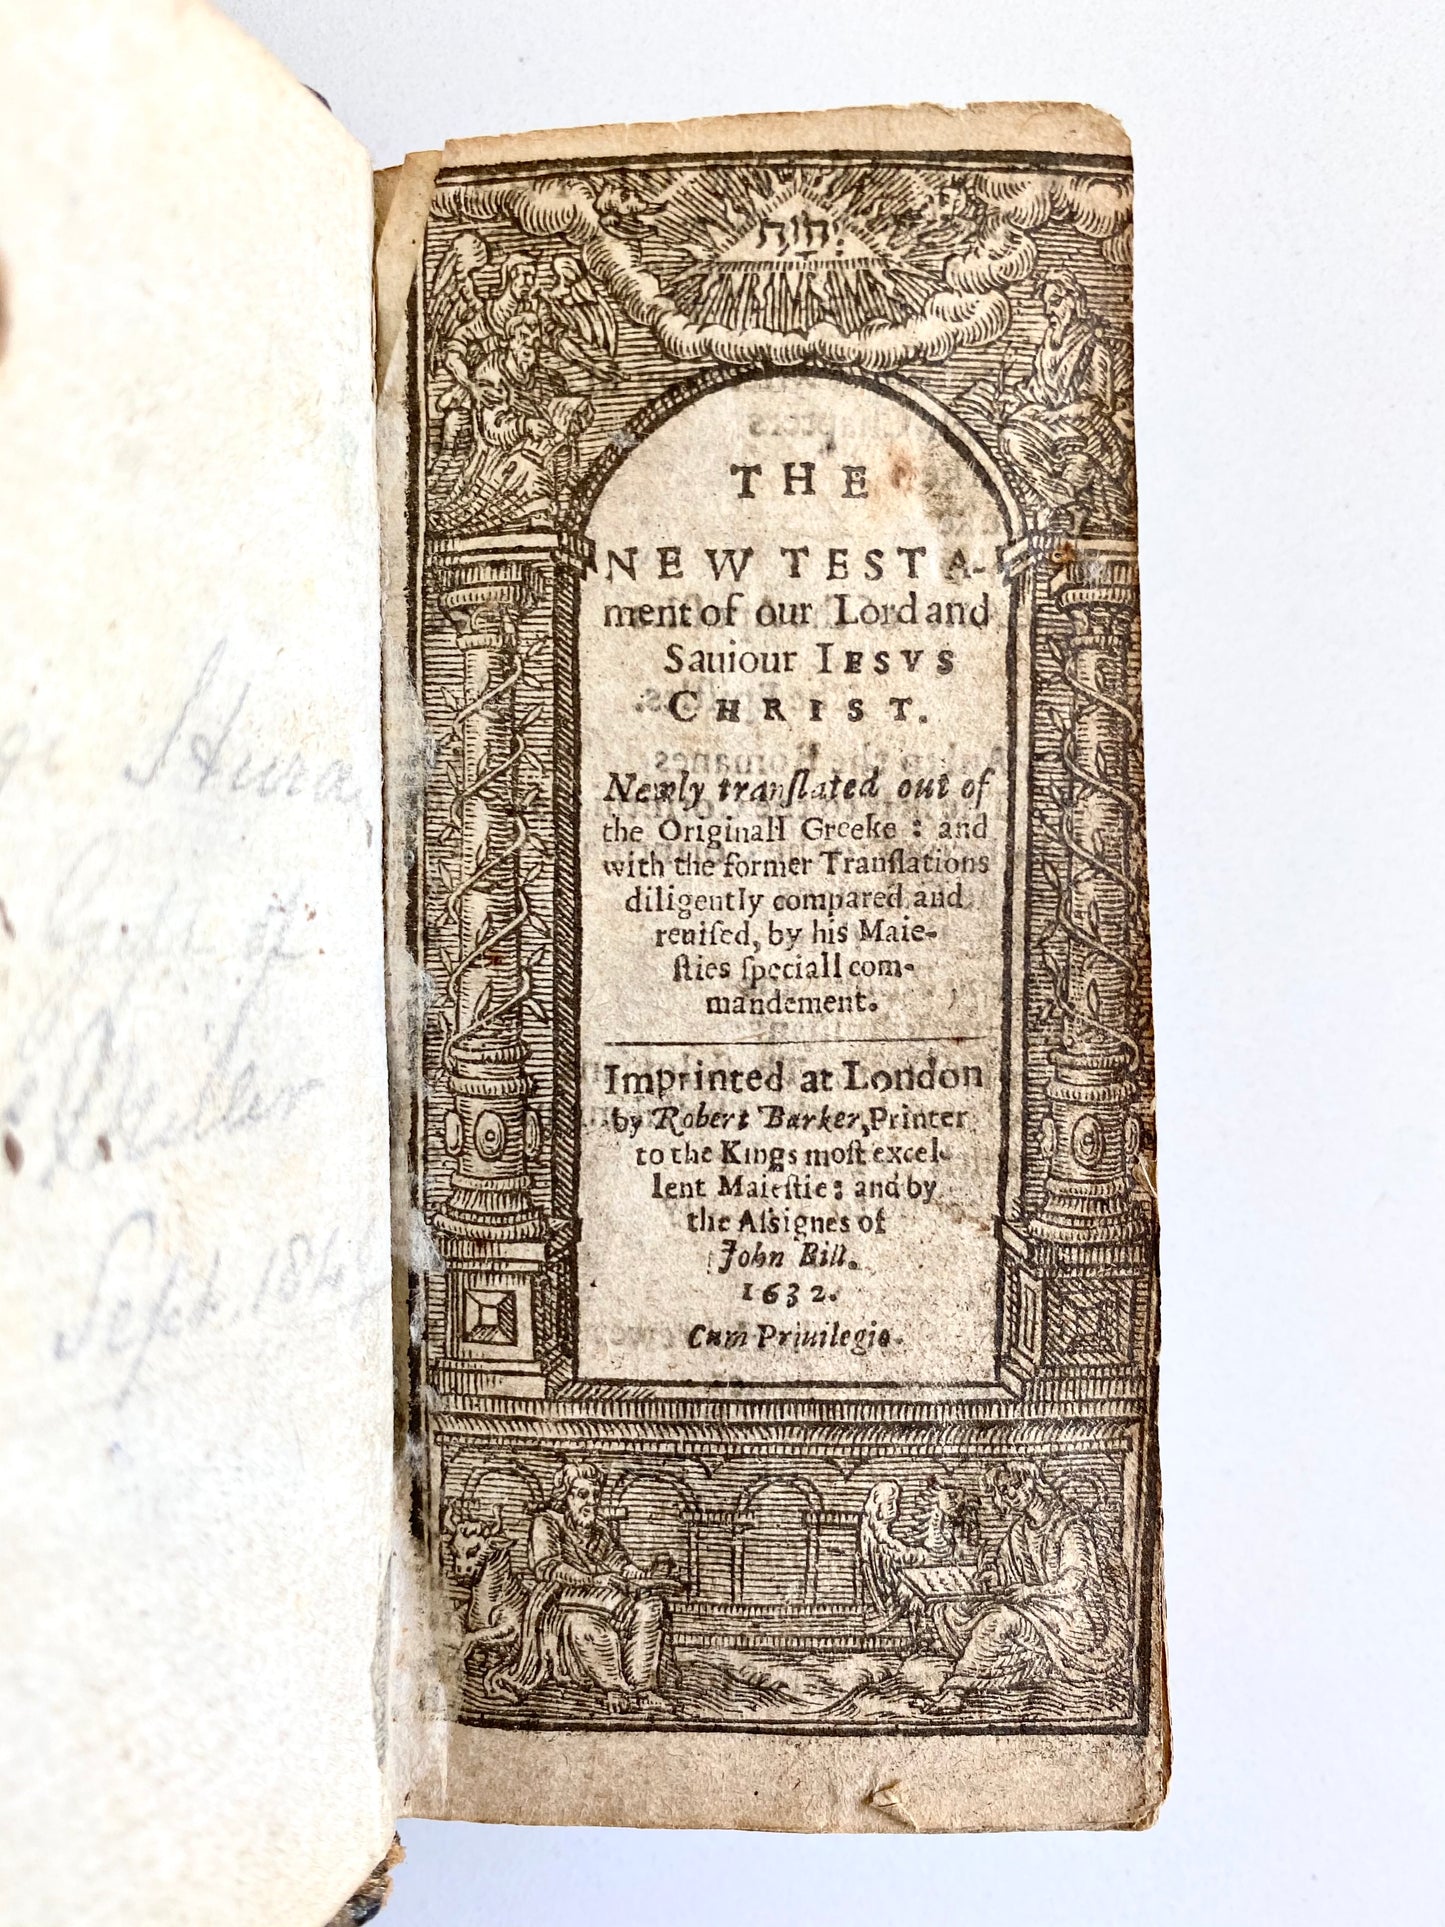 Sept. 184
יְהֹוָה
THE
NEW TESTA-
ment of our Lord and
Sauiour IESVS
CHRIST.
Newly tranſlated out of
the Originall Greeke : and
with the former Tranſlations
diligently compared and
reuiſed, by his Maie-
ſties ſpeciall com-
mandement.
Imprinted at London
by Robert Barker, Printer
to the Kings moſt excel-
lent Maieſtie: and by
the Aſsignes of
John Bill.
1632.
Cum Priuilegio.